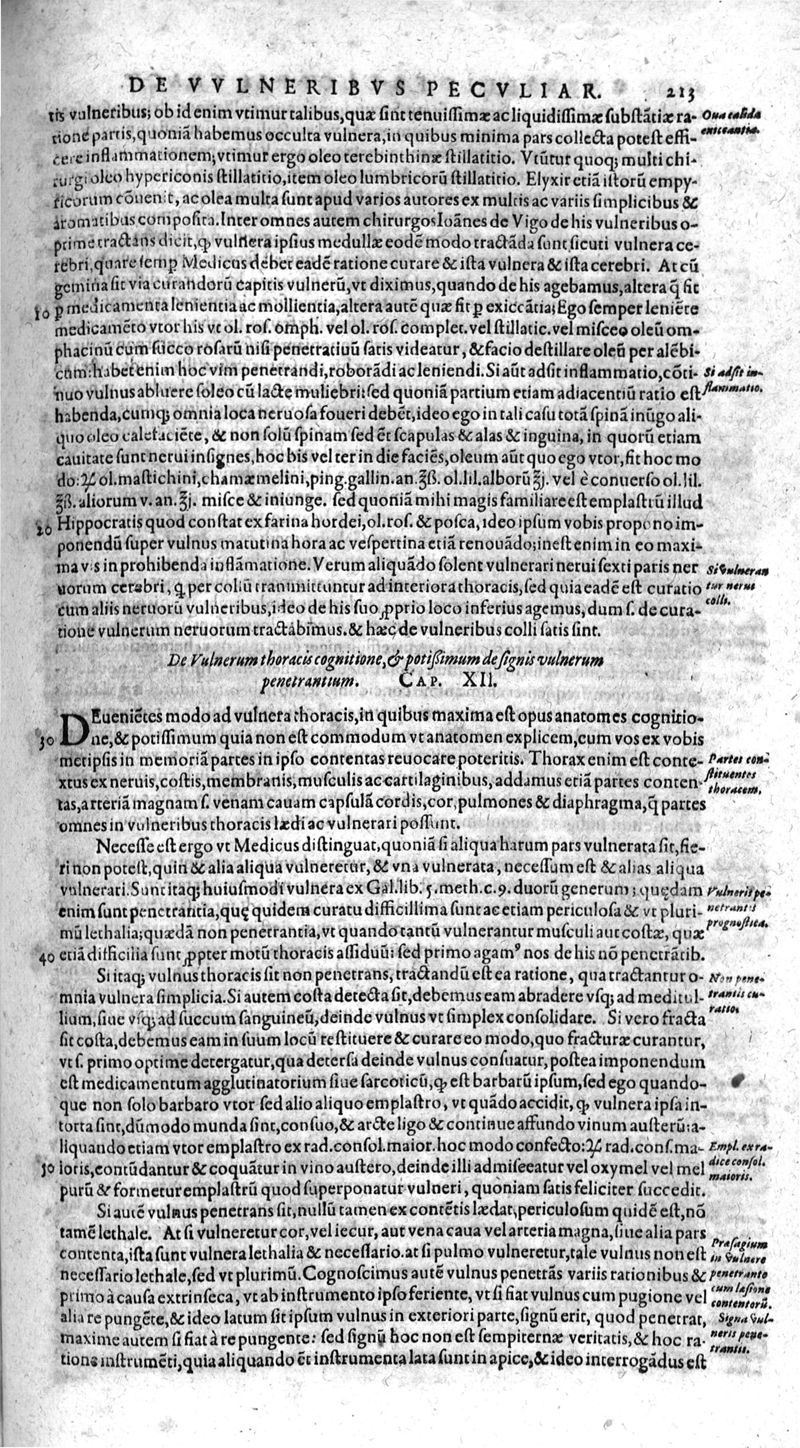 DE VVLNERIBVS PECVLIAR. 213
tis vulneribus; ob id enim vtimur talibus, quæ sint tenuissimæ ac liquidissimæ substãtiæ ra-
tione partis, quoniã habemus occulta vulnera, in quibus minima pars collecta potest effi-
cere inflammationem; vtimur ergo oleo terebinthinæ stillatitio. Vtũtur quoq; multi chi-
rurgi oleo hypericonis stillatitio, item oleo lumbricorũ stillatitio. Elyxir etiã istorũ empy-
ricorum cõuenit, ac olea multa sunt apud varios autores ex multis ac variis simplicibus &
aromatibus composita. Inter omnes autem chirurgos Ioãnes de Vigo de his vulneribus o-
prime tractans dicit, ꝙ vulnera ipsius medullæ eodẽ modo tractãda sunt, sicuti vulnera ce-
rebri, quare semꝑ Medicus debet eadẽ ratione curare & ista vulnera & ista cerebri. At cũ
gemina sit via curandorũ capitis vulnerũ, vt diximus, quando de his agebamus, altera q̃ sit
10 ꝑ medicamenta lenientia ac mollientia, altera autẽ quæ sit ꝑ exiccãtia; Ego semper leniẽte
medicamẽto vtor his vt ol. ros. omph. vel ol. ros. complet. vel stillatic. vel misceo oleũ om-
phacinũ cum succo rosarũ nisi penetratiuũ satis videatur, & facio destillare oleũ per alẽbi-
cum: habet enim hoc vim penetrandi, roborãdi ac leniendi. Si aũt adsit inflammatio, cõti-
nuo vulnus abluere soleo cũ lacte muliebri: sed quoniã partium etiam adiacentiũ ratio est
habenda, cumq; omnia loca neruosa foueri debẽt, ideo ego in tali casu totã spinã inũgo ali-
quo oleo calefaciẽte, & non solũ spinam sed ẽt scapulas & alas & inguina, in quorũ etiam
cauitate sunt nerui insignes, hoc bis vel ter in die faciẽs, oleum aũt quo ego vtor, fit hoc mo
do: ℞ ol. mastichini, chamæmelini, ping. gallin. an. ℥ß. ol. lil. alborũ ℥j. vel è conuerso ol. lil.
℥ß. aliorum v. an. ℥j. misce & iniunge. sed quoniã mihi magis familiare est emplastrũ illud
20 Hippocratis quod constat ex farina hordei, ol. ros. & posca, ideo ipsum vobis propono im-
ponendũ super vulnus matutina hora ac vespertina etiã renouãdo; inest enim in eo maxi-
ma vis in prohibenda inflãmatione. Verum aliquãdo solent vulnerari nerui sexti paris ner
uorum cerebri, q̃ per collũ transmittuntur ad interiora thoracis, sed quia eadẽ est curatio
cum aliis neruorũ vulneribus, ideo de his suo ꝓprio loco inferius agemus, dum s. de cura-
tione vulnerum neruorum tractabimus. & hæc de vulneribus colli satis sint.
Oua calida
exiccantia.
Si adsit in-
flammatio.
Si vulneran
tur nerui
colli.
De Vulnerum thoracis cognitione, & potißimum de signis vulnerum
penetrantium. CAP. XII.
DEueniẽtes modo ad vulnera thoracis, in quibus maxima est opus anatomes cognitio-
30 ne, & potissimum quia non est commodum vt anatomen explicem, cum vos ex vobis
metipsis in memoriã partes in ipso contentas reuocare poteritis. Thorax enim est conte-
xtus ex neruis, costis, membranis, musculis ac cartilaginibus, addamus etiã partes conten-
tas, arteriã magnam s. venam cauam capsulã cordis, cor, pulmones & diaphragma, q̃ partes
omnes in vulneribus thoracis lædi ac vulnerari possunt.
Necesse est ergo vt Medicus distinguat, quoniã si aliqua harum pars vulnerata sit, fie-
ri non potest, quin & alia aliqua vulneretur, & vna vulnerata, necessum est & alias aliqua
vulnerati. Sunt itaq; huiusmodi vulnera ex Gal. lib. 5. meth. c. 9. duorũ generum; quędam
enim sunt penetrantia, quę quidem curatu difficillima sunt ac etiam periculosa & vt pluri-
mũ lethalia; quædã non penetrantia, vt quando tantũ vulnerantur musculi aut costæ, quæ
40 etiã difficilia sunt ꝓpter motũ thoracis assiduũ: sed primo agamꝰ nos de his nõ penetrãtib.
Si itaq; vulnus thoracis sit non penetrans, tractandũ est ea ratione, qua tractantur o-
mnia vulnera simplicia. Si autem costa detecta sit, debemus eam abradere vsq; ad meditul-
lium, siue vsq; ad succum sanguineũ, deinde vulnus vt simplex consolidare. Si vero fracta
sit costa, debemus eam in suum locũ restituere & curare eo modo, quo fracturæ curantur,
vt s. primo optime detergatur, qua detersa deinde vulnus consuatur, postea imponendum
est medicamentum agglutinatorium siue sarcoticũ, ꝙ est barbarũ ipsum, sed ego quando-
que non solo barbaro vtor sed alio aliquo emplastro, vt quãdo accidit, ꝙ vulnera ipsa in-
torta sint, dũmodo munda sint, consuo, & arcte ligo & continue affundo vinum austerũ: a-
liquando etiam vtor emplastro ex rad. consol. maior. hoc modo confecto: ℞ rad. cons. ma-
50 ioris, contũdantur & coquãtur in vino austero, deinde illi admisceatur vel oxymel vel mel
purũ & formetur emplastrũ quod superponatur vulneri, quoniam satis feliciter succedit.
Si autẽ vulnus penetrans sit, nullũ tamen ex contẽtis lædat, periculosum quidẽ est, nõ
tamẽ lethale. At si vulneretur cor, vel iecur, aut vena caua vel arteria magna, siue alia pars
contenta, ista sunt vulnera lethalia & necessario. at si pulmo vulneretur, tale vulnus non est
necessario lethale, sed vt plurimũ. Cognoscimus autẽ vulnus penetrãs variis rationibus &
primo à causa extrinseca, vt ab instrumento ipso feriente, vt si fiat vulnus cum pugione vel
alia re pungẽte, & ideo latum sit ipsum vulnus in exteriori parte, signũ erit, quod penetrat,
maxime autem si fiat à re pungente: sed signũ hoc non est sempiternæ veritatis, & hoc ra-
tione instrumẽti, quia aliquando ẽt instrumenta lata sunt in apice, & ideo interrogãdus est
Partes con-
stituentes
thoracem.
Vulneris pe-
netrantis
prognostica.
Non pene-
trantis cu-
ratio.
Empl. ex ra-
dice consol.
maioris.
Præsagium
in vulnere
penetrante
cum læsione
contentorũ.
Signa vul-
neris pene-
trantis.